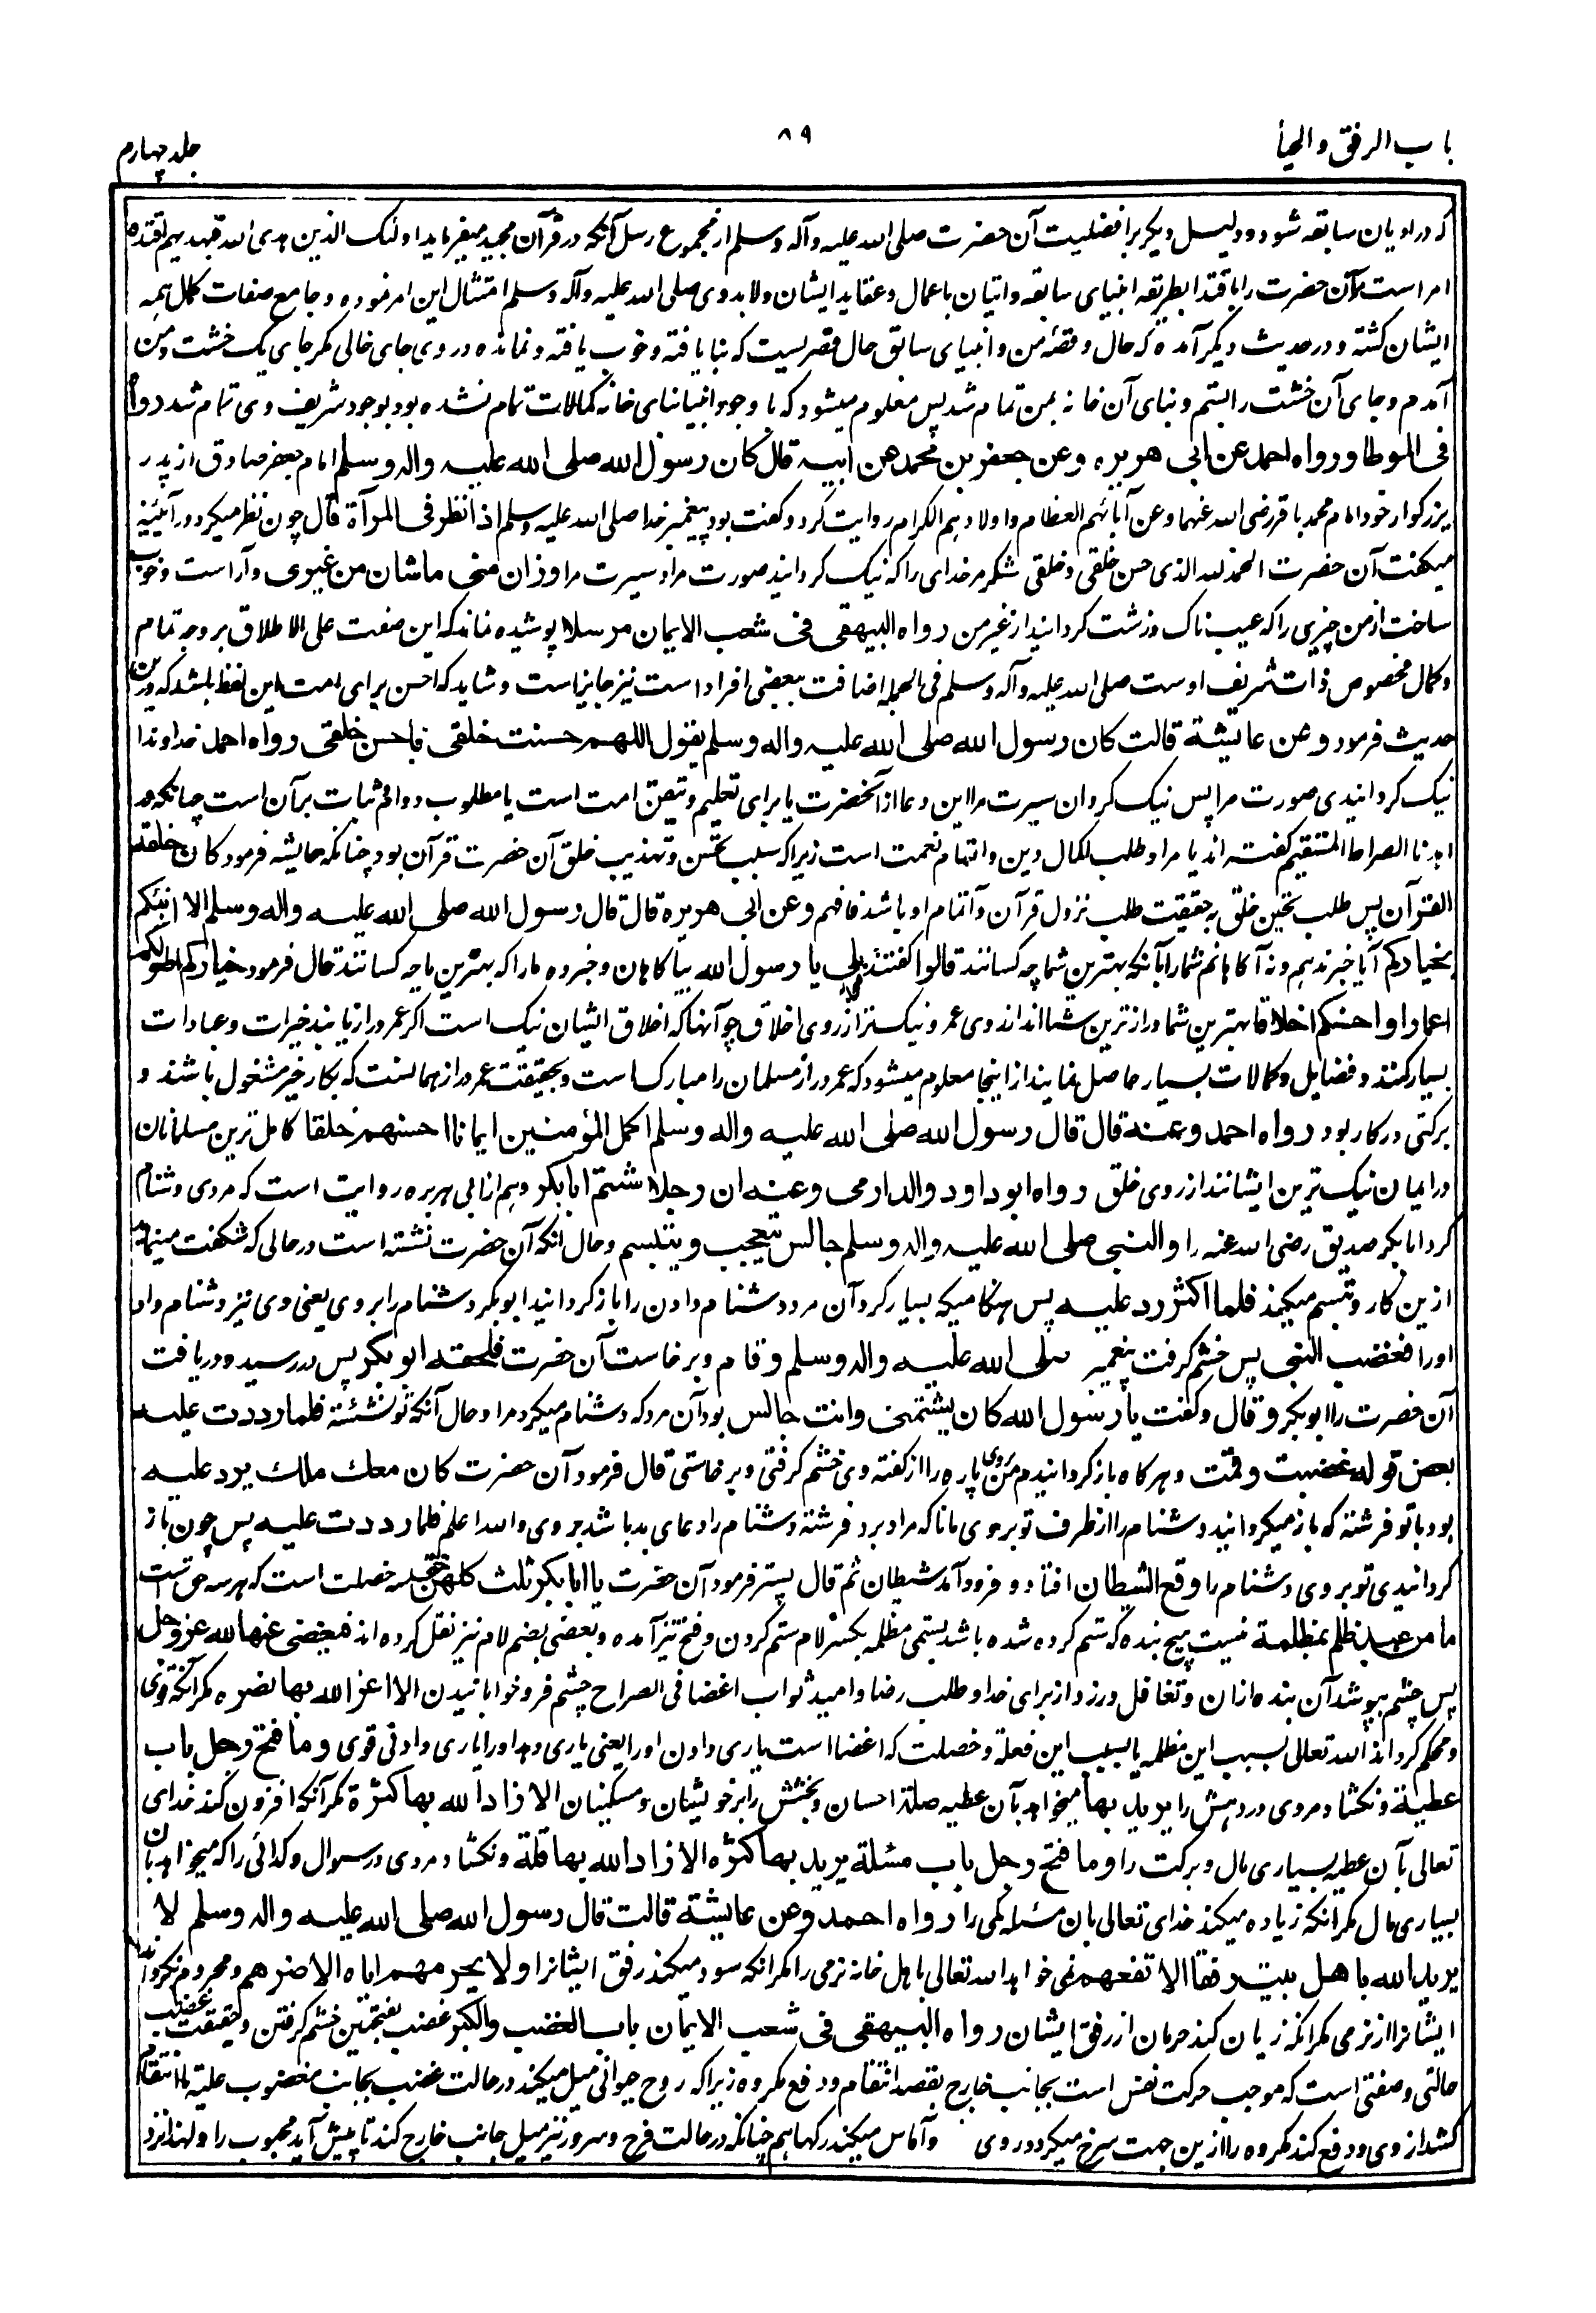 باب الرفق والحیأ
۸۹
جلد چهارم
که در ادیان سابقه شود و دلیل دیگر بر افضلیت آن حضرت صلی الله علیه وآله وسلم از مجموع رسل آنکه در قرآن مجید میفرماید اولئک الذین هدی الله فبهدیهم اقتده
امر است مر آن حضرت را باقتدا بطریقه انبیای سابقه واتیان باعمال وعقاید ایشان ولابد وی صلی الله علیه وآله وسلم امتثال این امر فموده وجامع صفات کمال همه
ایشان گشته و در حدیث دیگر آمده که حال وقصه من وانبیای سابق حال قصریست که بنا یافته وخوب یافته ونمانده در وی جای خالی مگر جای یک خشت ومن
آمدم وجای آن خشت را بستم وبنای آن خانه بمن تمام شد پس معلوم میشود که با وجود انبیا بنای خانه کمالات تمام نشده بود بوجود شریف وی تمام شد رواه
فی الموطا ورواه احمد عن ابی هریره وعن جعفر بن محمد عن ابیه قال کان رسول الله صلی الله علیه واله وسلم امام جعفر صادق از پدر
بزرگوار خود امام محمد باقر رضی الله عنهما وعن آبائهم العظام واولادهم الکرام روایت کرد وگفت بود پیغمبر خدا صلی الله علیه وسلم اذا نظر فی المرآة قال چون نظر میکرد در آیئنه
میگفت آن حضرت الحمد لله الذی حسن خلقی وخلقی شکر مر خدای را که نیک گردانید صورت مرا و سیرت مرا وزان منی ماشان من غیری وآراست وخوب
ساخت از من چیزی را که عیب ناک وزشت گردانید از غیر من رواه البیهقی فی شعب الایمان مرسلا پوشیده نماند که این صفت علی الاطلاق بر وجه تمام
وکمال مخصوص ذات شریف اوست صلی الله علیه وآله وسلم فی الجمله اضافت ببعضی افراد است نیز جایز است وشاید که احسن برای امت این لفظ باشد که درین
حدیث فرمود وعن عایشة قالت کان رسول الله صلی الله علیه واله وسلم یقول اللهم حسنت خلقی فاحسن خلقی رواه احمد خداوندا
نیک گردانیدی صورت مرا پس نیک گردان سیرت مرا این دعا از آنحضرت یا برای تعلیم وتلقین امت است یا مطلوب دوام ثبات بر آن است چنانکه در
اهدنا الصراط المستقیم گفته اند یا مراد طلب اکمال دین واتمام نعمت است زیرا که سبب تحسین وتهذیب خلق آن حضرت قرآن بود چنانکه عایشه فرمود کان خلقه
القرآن پس طلب تحسین خلق به حقیقت طلب نزول قرآن واتمام او باشد فافهم وعن ابی هریره قال قال رسول الله صلی الله علیه واله وسلم الا انبئکم
بخیارکم آیا خبر ندهم ونه آگاهانم شما را بآنکه بهترین شما چه کسانند قالوا گفتند بلی یا رسول الله بیاگاهان وخبر ده ما را که بهترین ما چه کسانند قال فرمود خیارکم اطولکم
اعمارا واحسنکم اخلاقا بهترین شما درازترین شما اند از روی عمر ونیک تر از روی اخلاق چو آنها که اخلاق ایشان نیک است اگر عمر دراز یابند خیرات وعبادات
بسیار کنند وفضایل وکمالات بسیار حاصل نمایند از اینجا معلوم میشود که عمر دراز مسلمان را مبارک است وبحقیقت عمر دراز همانست که بکار خیر مشغول باشند و
برکتی در کار بود رواه احمد وعنه قال قال رسول الله صلی الله علیه واله وسلم اکمل المؤمنین ایمانا احسنهم خلقا کامل ترین مسلمانان
در ایمان نیک ترین ایشانند از روی خلق رواه ابو داود والدارمی وعنه ان رجلا شتم ابابکر وهم از ابی هریره روایت است که مردی دشنام
کرد ابابکر صدیق رضی الله عنه را والنبی صلی الله علیه واله وسلم جالس یتعجب ویتبسم وحال انکه آن حضرت نشسته است در حالی که شگفت مینماید
ازین کار وتبسم میکند فلما اکثر رد علیه پس هنگامیکه بسیار کرد آن مرد دشنام دادن را باز گردانید ابوبکر دشنام را بر وی یعنی وی نیز دشنام داد
اورا فغضب النبی پس خشم گرفت پیغمبر صلی الله علیه واله وسلم وقام وبرخاست آن حضرت فلحقه ابوبکر پس در رسید ودریافت
آن حضرت را ابوبکر وقال وگفت یا رسول الله کان یشتمنی وانت جالس بود آن مرد که دشنام میکرد مرا وحال آنکه تو نشسته فلما رددت علیه
بعض قوله غضبت وقمت وهرگاه باز گردانیدم من بروی پاره را از گفته وی خشم گرفتی وبرخاستی قال فرمود آن حضرت کان معک ملک یرد علیه
بود با تو فرشته که باز میگردانید دشنام را از طرف تو بروی مانا که مراد برد فرشته دشنام را دعای بد باشد بر وی والله اعلم فلما رددت علیه پس چون باز
گردانیدی تو بروی دشنام را وقع الشیطان افتاد وفرود آمد شیطان ثم قال پستر فرمود آن حضرت یا ابا بکر ثلث کلهن حق سه خصلت است که هر سه حق است
ما من عبد ظلم بمظلمة نیست هیچ بنده که ستم کرده شده باشد بستمی مظلمه بکسر لام ستم کردن وفتح نیز آمده وبعضی بضم لام نیز نقل کرده اند فیغضی عنها لله عز وجل
پس چشم بپوشد آن بنده ازان وتغافل ورزد از برای خدا وطلب رضا وامید ثواب اغضا فی الصراح چشم فرو خوابانیدن الا اعز الله بها نصره مگر آنکه قوی
ومحکم گرداند الله تعالی بسبب این مظلمه یا بسبب این فعله وخصلت که اغضا است یاری دادن اورا یعنی یاری دهد اورا یاری دادنی قوی وما فتح رجل باب
عطیة ونکشاد مردی در دهش را یرید بها میخواهد بآن عطیه صلة احسان وبخشش را بر خویشان ومسکینان الا زاد الله بها کثرة مگر آنکه افزون کند خدای
تعالی بآن عطیه بسیاری مال وبرکت را وما فتح رجل باب مسئلة یرید بها کثره الا زاد الله بها قلة ونکشاد مردی در سوال وگدائی را که میخواهد بآن
بسیاری مال مگر انکه زیاده میکند خدای تعالی بان مسئله کمی را رواه احمد وعن عایشة قالت قال رسول الله صلی الله علیه واله وسلم لا
یرید الله باهل بیت رفقا الا نفعهم نمی خواهد الله تعالی باهل خانه نرمی را مگر انکه سود میکند رفق ایشانرا ولا یحرمهم ایاه الا ضرهم ومحروم نگرداند
ایشانرا از نرمی مگر انکه زیان کند حرمان از رفق ایشان رواه البیهقی فی شعب الایمان باب الغضب والکبر غضب بفتحتین خشم گرفتن وحقیقت غضب
حالتی وصفتی است که موجب حرکت نفس است بجانب خارج بقصد انتقام ودفع مکروه زیرا که روح حیوانی میل میکند در حالت غضب بجانب مغضوب علیه تا انتقام
کشد از وی ودفع کند مکروه را ازین جهت سرخ میگردد روی وآماس میکند رگها هم چنانکه در حالت فرح وسرور نیز میل جانب خارج کند تا پیش آید محبوب را ولهذا نزد